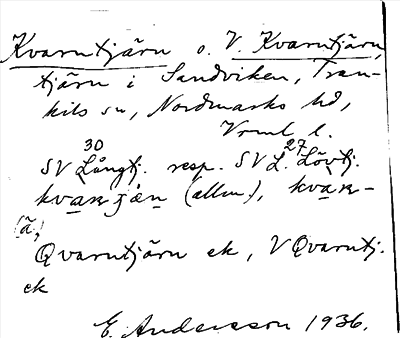 Kvarntjärn o. V. Kvarntjärn,
tjärn i Sandviken, Tran-
kils sn, Nordmarks hd,
Vrml. l.
SV 30 Långtj. resp. SV 27 L. Lövtj.
(allm.),
Qvarntjärn ek, V Qvarntj.
ek
E. Andersson 1936.